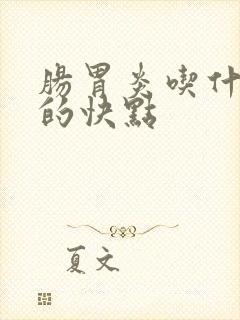 腸胃炎喫什
的快點
夏文